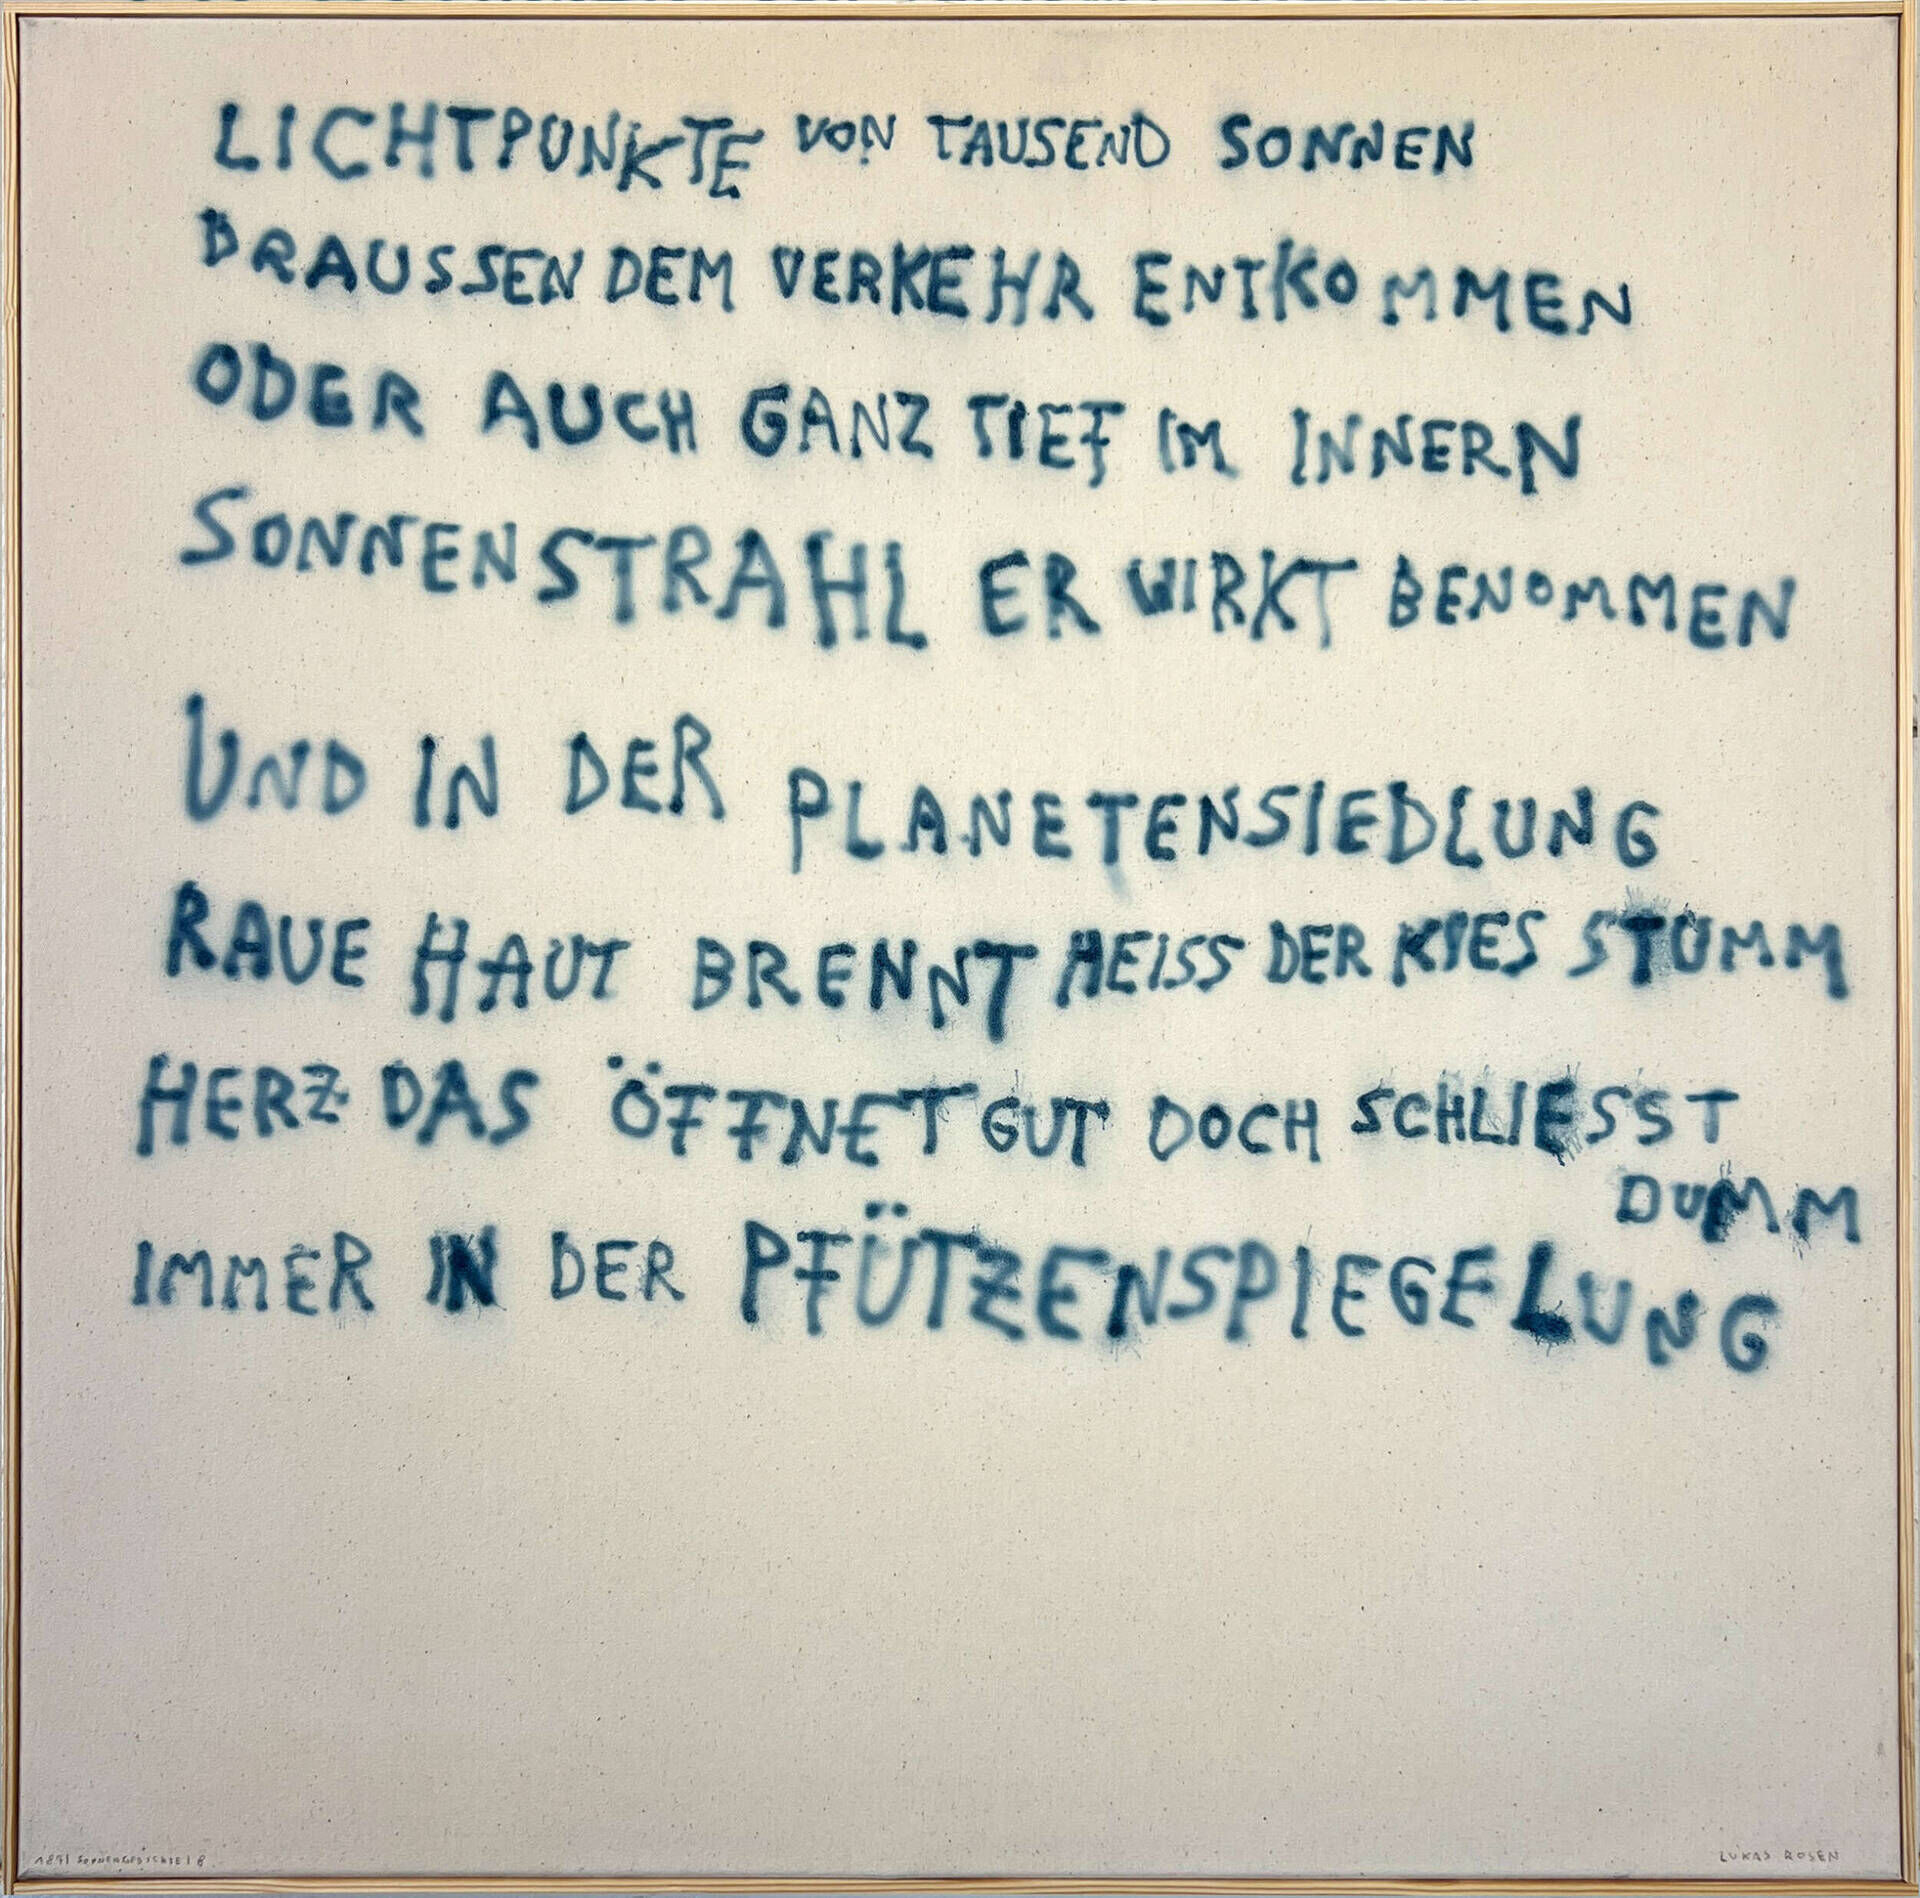 LICHTPUNKTE VON TAUSEND SONNEN
DRAUSSEN DEM VERKEHR ENTKOMMEN
ODER AUCH GANZ TIEF IM INNERN
SONNENSTRAHL ER WIRKT BENOMMEN
UND IN DER PLANETENSIEDLUNG
RAUE HAUT BRENNT HEISS DER KIES STUMM
HERZ DAS ÖFFNET GUT DOCH SCHLIESST
DUMM
IMMER IN DER PFÜTZENSPIEGELUNG
LUKAS ROSEN